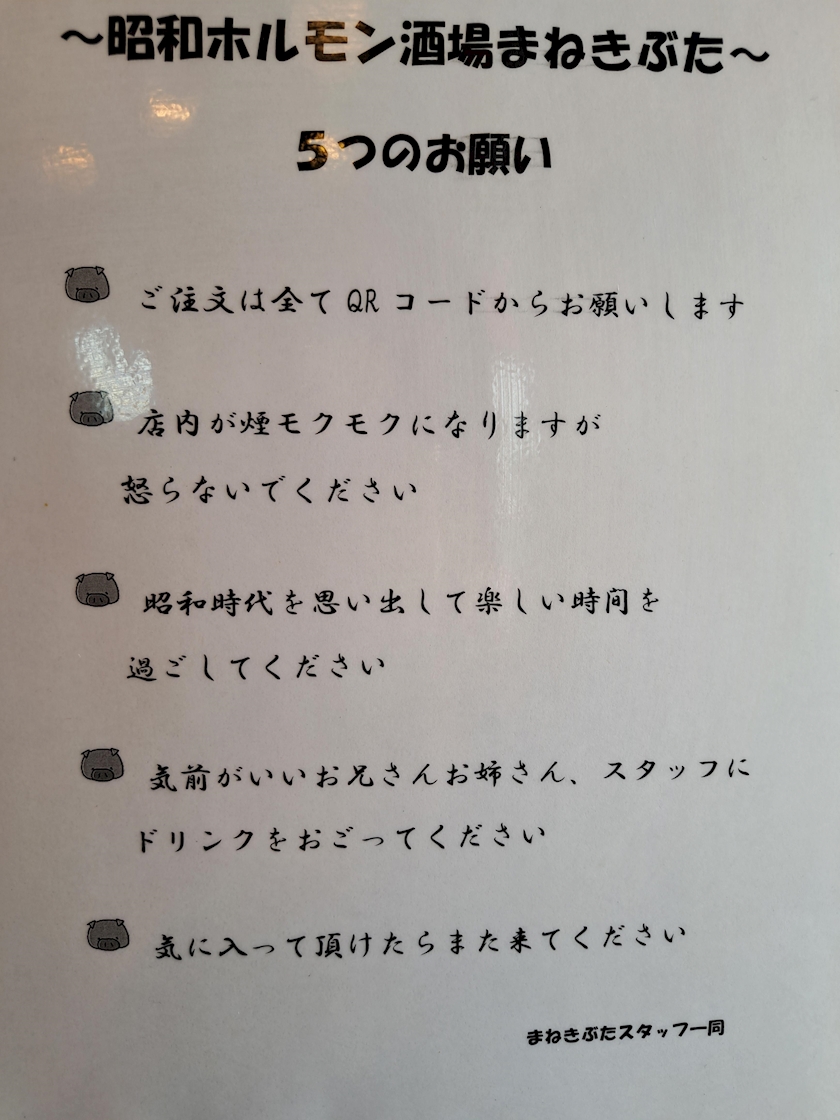 ～昭和ホルモン酒場まねきぶた～
5つのお願い
ご注文は全てQRコードからお願いします
店内が煙モクモクになりますが
怒らないでください
昭和時代を思い出して楽しい時間を
過ごしてください
気前がいいお兄さんお姉さん、スタッフに
ドリンクをおごってください
気に入って頂けたらまた来てください
まねきぶたスタッフ一同